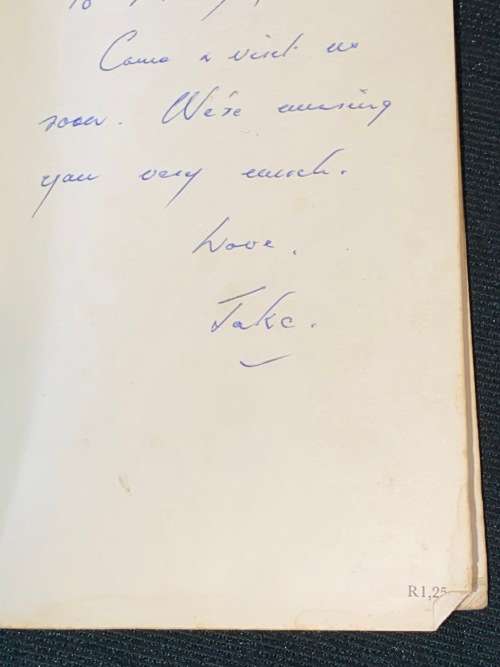 to
Come & visit us
soon. We're missing
you very much.
Love.
Jake.
R1,25